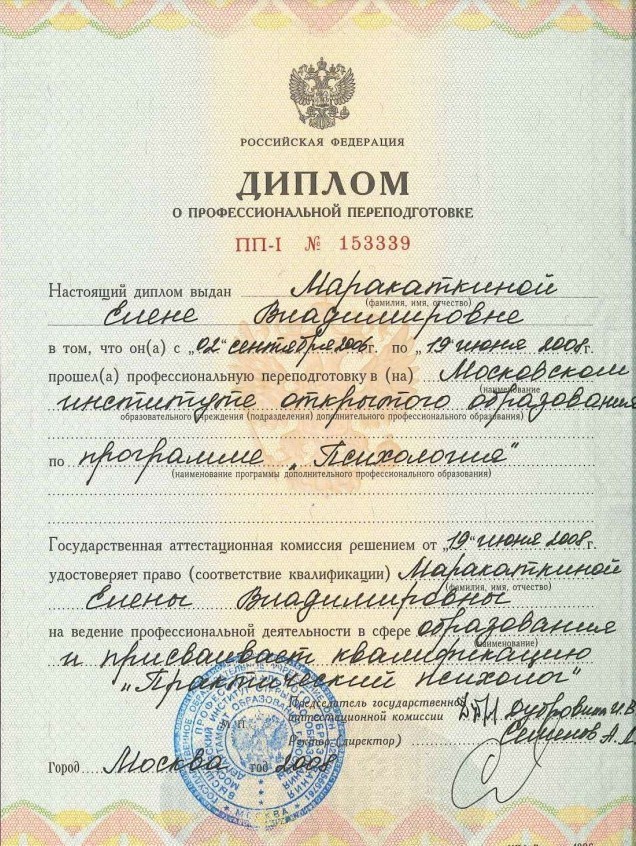 РОССИЙСКАЯ ФЕДЕРАЦИЯ
ДИПЛОМ
О ПРОФЕССИОНАЛЬНОЙ ПЕРЕПОДГОТОВКЕ
ПП-I № 153339
Настоящий диплом выдан Маракаткиной
(фамилия, имя, отчество)
Елене Владимировне
в том, что он(а) с „02" сентября 2006г. по „19" июня 2008г.
прошел(а) профессиональную переподготовку в (на) Московском
(наименование
институте открытого образования
образовательного учреждения (подразделения) дополнительного профессионального образования)
по программе „Психология"
(наименование программы дополнительного профессионального образования)
Государственная аттестационная комиссия решением от „19" июня 2008г.
удостоверяет право (соответствие квалификации) Маракаткиной
(фамилия, имя, отчество)
Елены Владимировны
на ведение профессиональной деятельности в сфере образования
(наименование)
и присваивает квалификацию
„Практический психолог"
Председатель государственной
аттестационной комиссии Дубровина И.В
Ректор (директор) Семенов А.Л.
Город Москва год 2008
МОСКВА